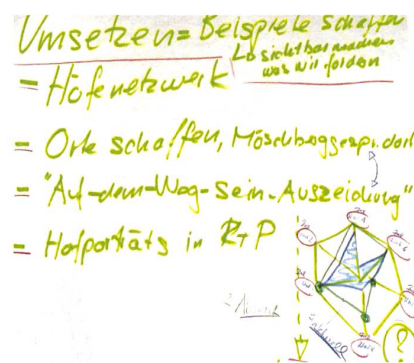 Umsetzen = Beispiele schaffen
↳ sichtbar machen
was wir fordern
= Höfenetzwerk
= Orte schaffen, Möschberggespr. dort
= "Auf-dem-Weg-Sein-Auszeichung"
= Hofporträts in K+P
?